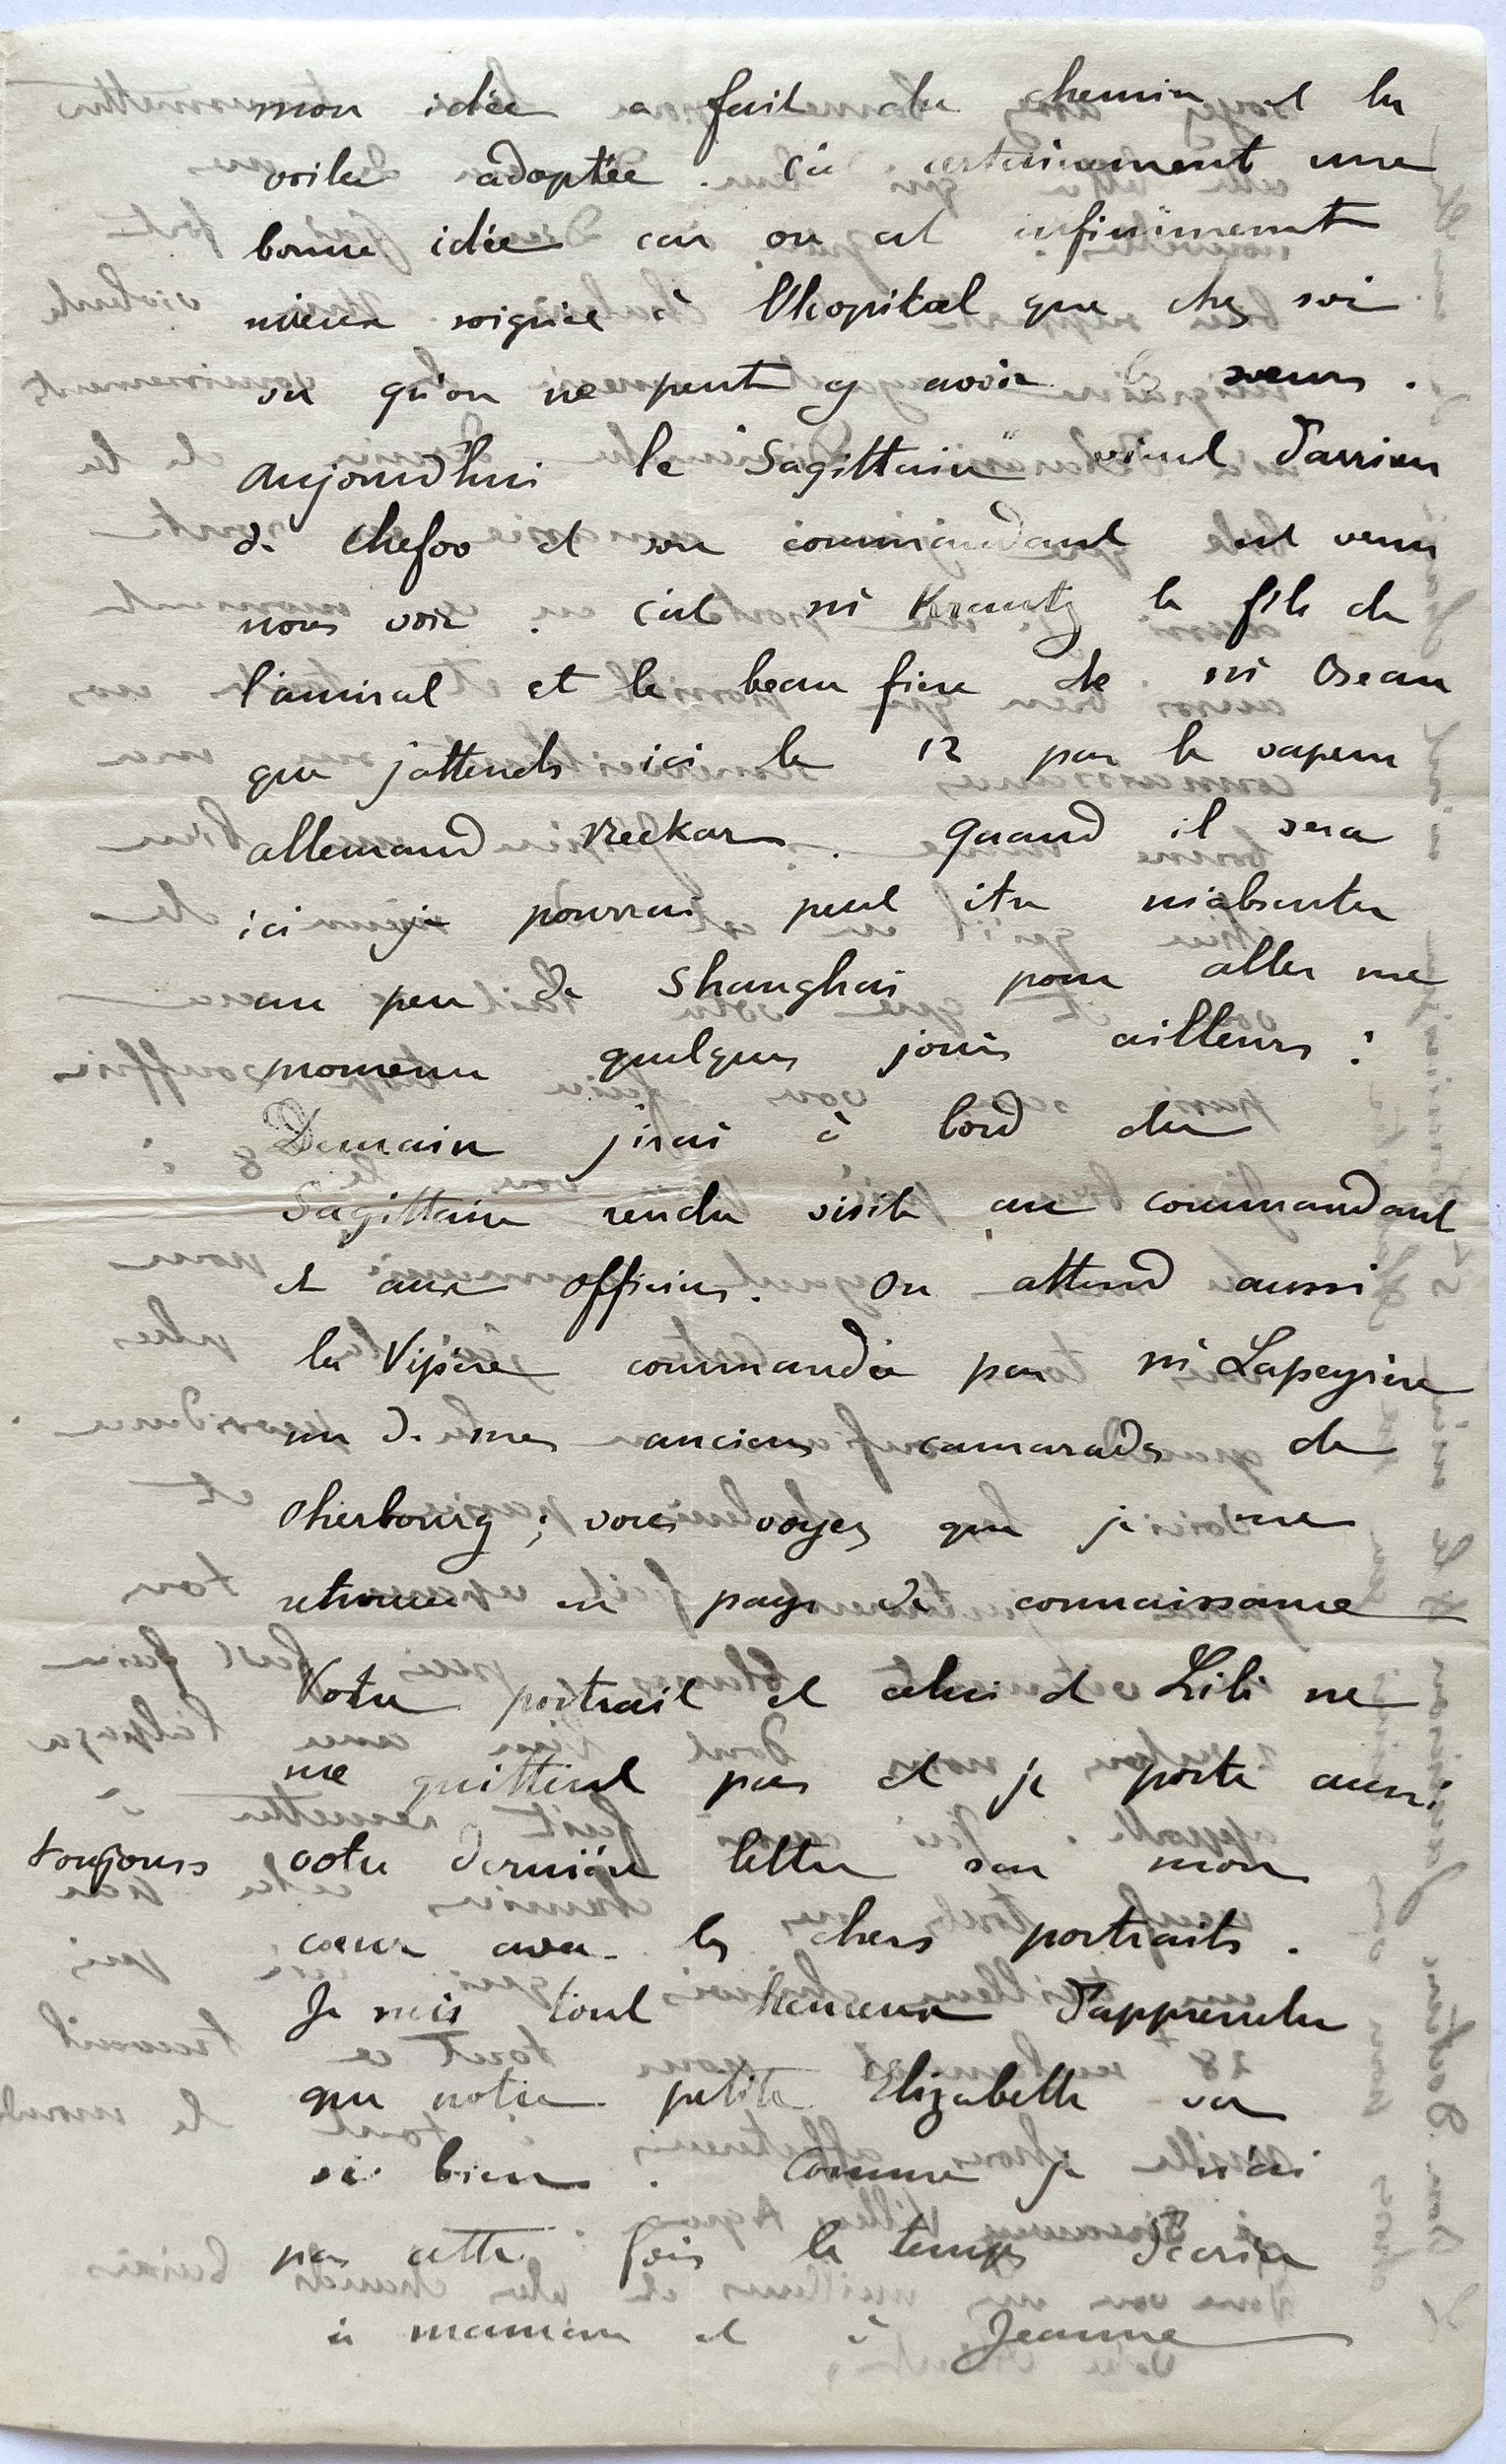 mon idée a fait du chemin et la
voilà adoptée. C'est certainement une
bonne idée car on est infiniment
mieux soigné à l'hopital que chez soi
vu qu'on ne peut y avoir les sœurs.
Aujourd'hui le "Sagittaire" vient d'arriver
de Chefoo et son commandant est venu
nous voir. C'est Mr Krantz le fils de
l'amiral et le beau frère de Mr
que j'attends ici le 12 par le vapeur
allemand Neckar. Quand il sera
ici je pourrai peut être m'absenter
un peu de Shanghai pour aller me
promener quelques jours ailleurs :
Demain j'irai à bord du
Sagittaire rendre visite au commandant
et aux officiers. On attend aussi
la Vipère commandée par Mr Lapeyrère
un de mes anciens camarades de
Cherbourg ; vous voyez que je me
retrouve en pays de connaissance
Votre portrait et celui de Lili ne
me quittent pas et je porte aussi
toujours votre dernière lettre sur mon
cœur avec les chers portraits.
Je suis tout heureux d'apprendre
que notre petite Elizabeth va
si bien. Comme je n'ai
pas cette fois le temps d'écrire
à maman et à Jeanne